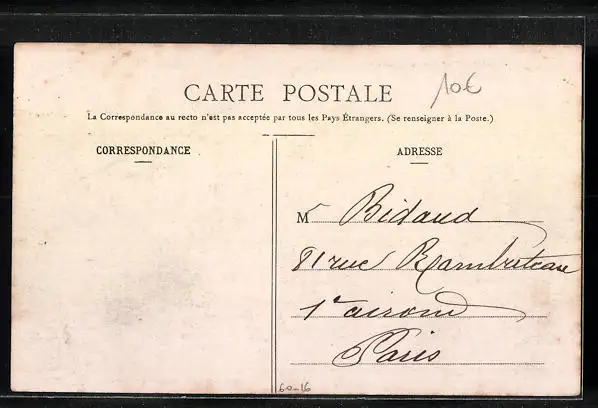 CARTE POSTALE
10€
La Correspondance au recto n'est pas acceptée par tous les Pays Étrangers. (Se renseigner à la Poste.)
CORRESPONDANCE
ADRESSE
M Bidaud
81 rue Rambuteau
1er arrond
Paris
60-16